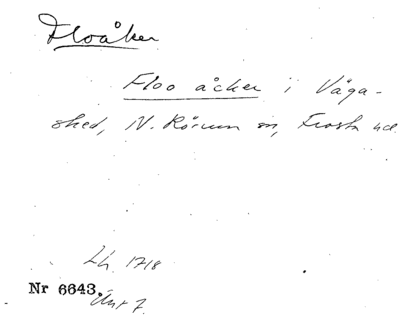 Floåker
Floo åcker i Våga-
shed, N. Rörum sn, Frosta hd.
Lh. 1718
Nr 6643. Ant 7.